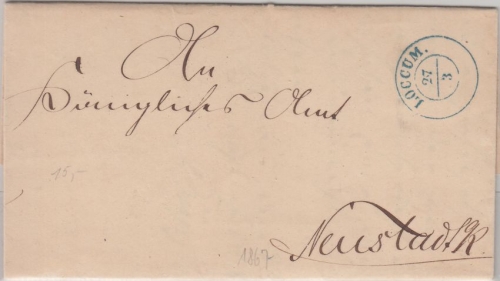 An
LOCCUM.
27
3
Königliches Amt
15,-
Neustadt/R
1867